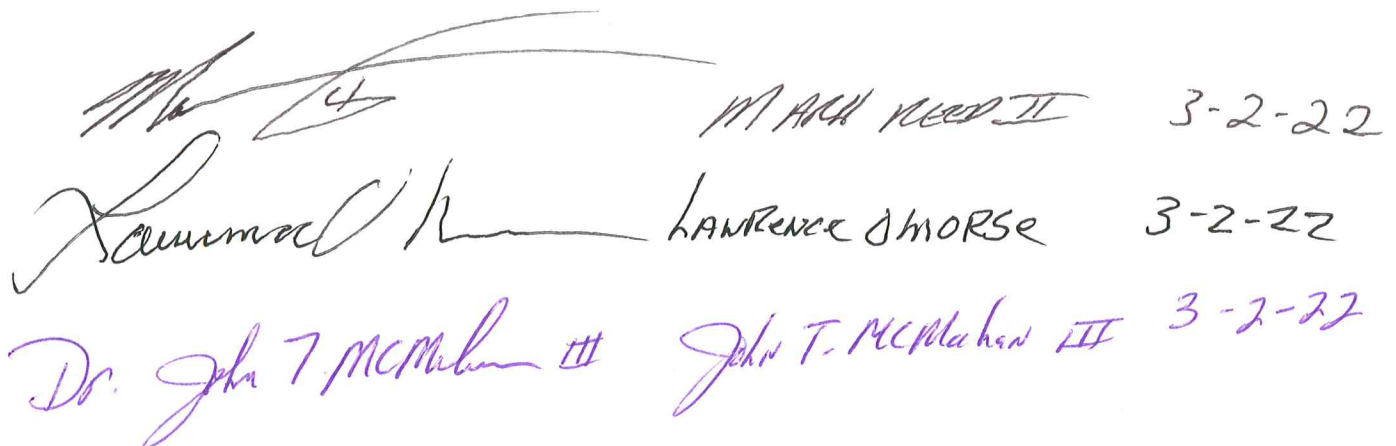 MARK REED II 3-2-22
LAWRENCE D MORSE 3-2-22
Dr. John T. McMahan III John T. McMahan III 3-2-22